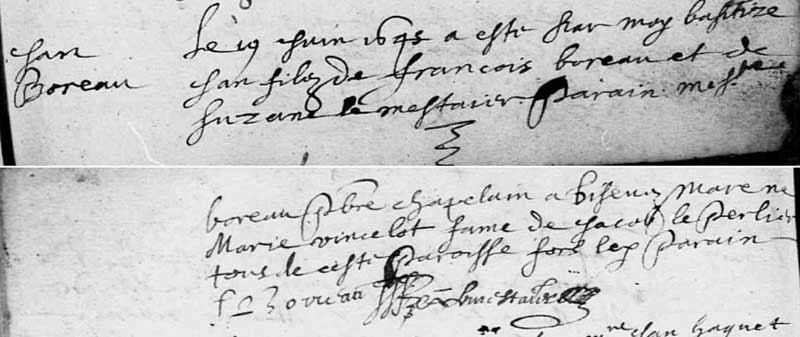 Jan
Boreau
Le 19 juin 1695 a este par moy baptize
Jan filz de françois boreau et de
suzane le mestaier Parain mesre
boreau Pbre chapelain a Mareine
Marie vincelot fame de Jacob le Perlier
tous de ceste Paroisse fors le Parain
f Boreau
Jan haquet